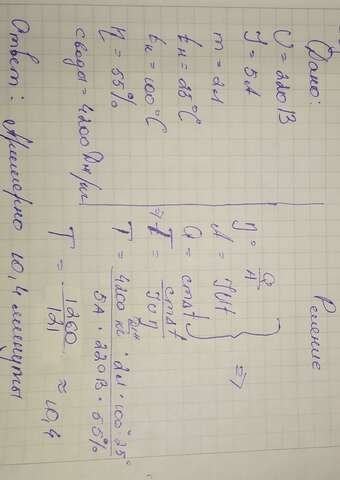 Дано:
U = 220 В
J = 5 А
m = 2 л
tн = 25°С
tк = 100°С
η = 55%
своды = 4200 Дж/кг
Решение
η = Q/A
A = JUt
Q = cmΔt
⇒
⇒ T = cmΔt / JUη
T = 4200 Дж/кг · 2л · 100° 25° / 5А · 220В · 55%
T = 1260/121 ≈ 10,4
Ответ: Примерно 10,4 минуты